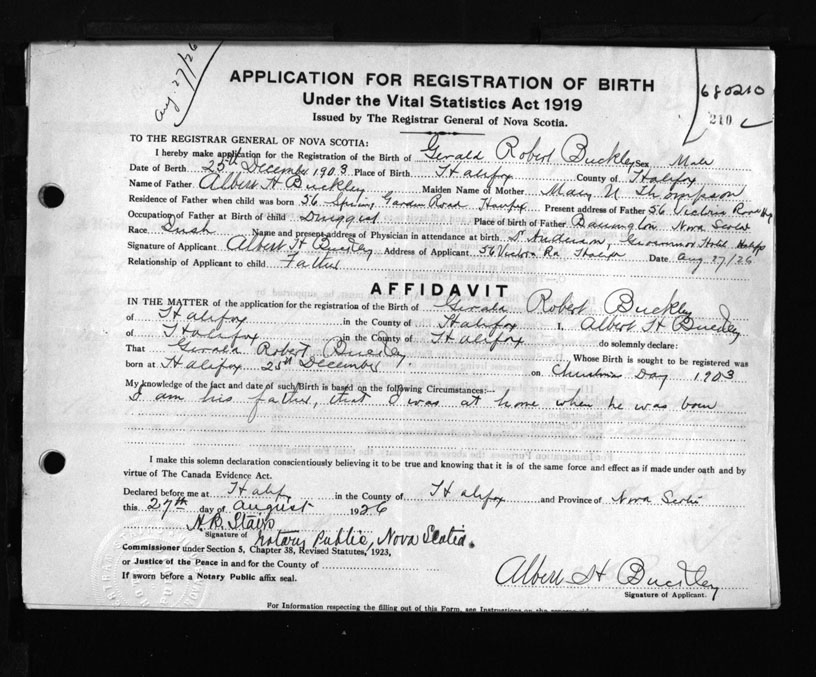 Aug. 27/26
APPLICATION FOR REGISTRATION OF BIRTH
Under the Vital Statistics Act 1919
Issued by The Registrar General of Nova Scotia.
680210
210
TO THE REGISTRAR GENERAL OF NOVA SCOTIA:
I hereby make application for the Registration of the Birth of Gerald Robert Buckley Sex Male
Date of Birth 25th December 1903 Place of Birth Halifax County of Halifax
Name of Father Albert H Buckley Maiden Name of Mother Mary Thompson
Residence of Father when child was born 56 Spring Garden Road Halifax Present address of Father 56 Victoria Road
Occupation of Father at Birth of child Druggist Place of birth of Father Barrington Nova Scotia
Race Name and present address of Physician in attendance at birth Anderson,
Signature of Applicant Albert H Buckley Address of Applicant 56 Victoria Rd Halifax Date Aug 27/26
Relationship of Applicant to child Father
AFFIDAVIT
IN THE MATTER of the application for the registration of the Birth of Gerald Robert Buckley
of Halifax in the County of Halifax I, Albert H Buckley
of Halifax in the County of Halifax do solemnly declare:
That Gerald Robert Buckley Whose Birth is sought to be registered was
born at Halifax 25th December on Christmas Day 1903
My knowledge of the fact and date of such Birth is based on the following Circumstances:—
I am his father, that I was at home when he was born
I make this solemn declaration conscientiously believing it to be true and knowing that it is of the same force and effect as if made under oath and by
virtue of The Canada Evidence Act.
Declared before me at Halifax in the County of Halifax and Province of Nova Scotia
this 27th day of August 1926
Signature of Notary Public, Nova Scotia.
Commissioner under Section 5, Chapter 38, Revised Statutes, 1923,
or Justice of the Peace in and for the County of
If sworn before a Notary Public affix seal.
Albert H Buckley
Signature of Applicant.
For Information respecting the filling out of this Form, see Instructions on the